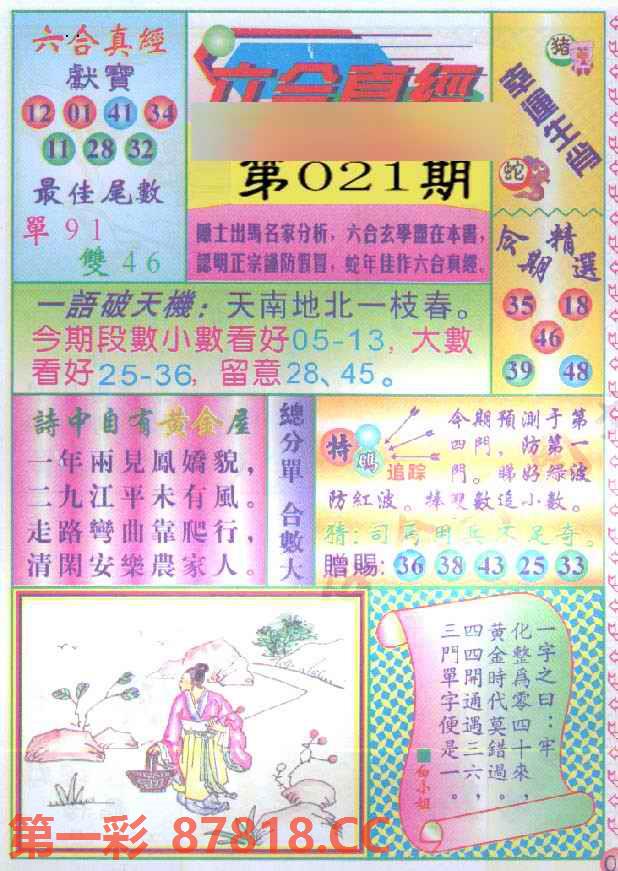 六合真經
獻寶
12 01 41 34
11 28 32
最佳尾數
單91
雙46
六合真經
第021期
隱士出馬名家分析，六合玄學盡在本書，
認明正宗謹防假冒，蛇年佳作六合真經。
猪
蛇
今期精選
35 18
46
39 48
一語破天機：天南地北一枝春。
今期段數小數看好05-13，大數
看好25-36，留意28、45。
詩中自有黃金屋
一年兩見鳳嬌貌，
二九江平未有風。
走路彎曲靠爬行，
清閑安樂農家人。
總分單 合數大
特碼
追踪
今期預測于第
四門，防第一
門。睇好绿波
防紅波。捧雙數追小數。
猜：司馬用兵不足奇。
贈賜：36 38 43 25 33
一字之曰：牢
化整為零四十來，
黃金時代莫錯過。
四四開通遇三六，
三門單字便是一。
白小姐
第一彩 87818.CC